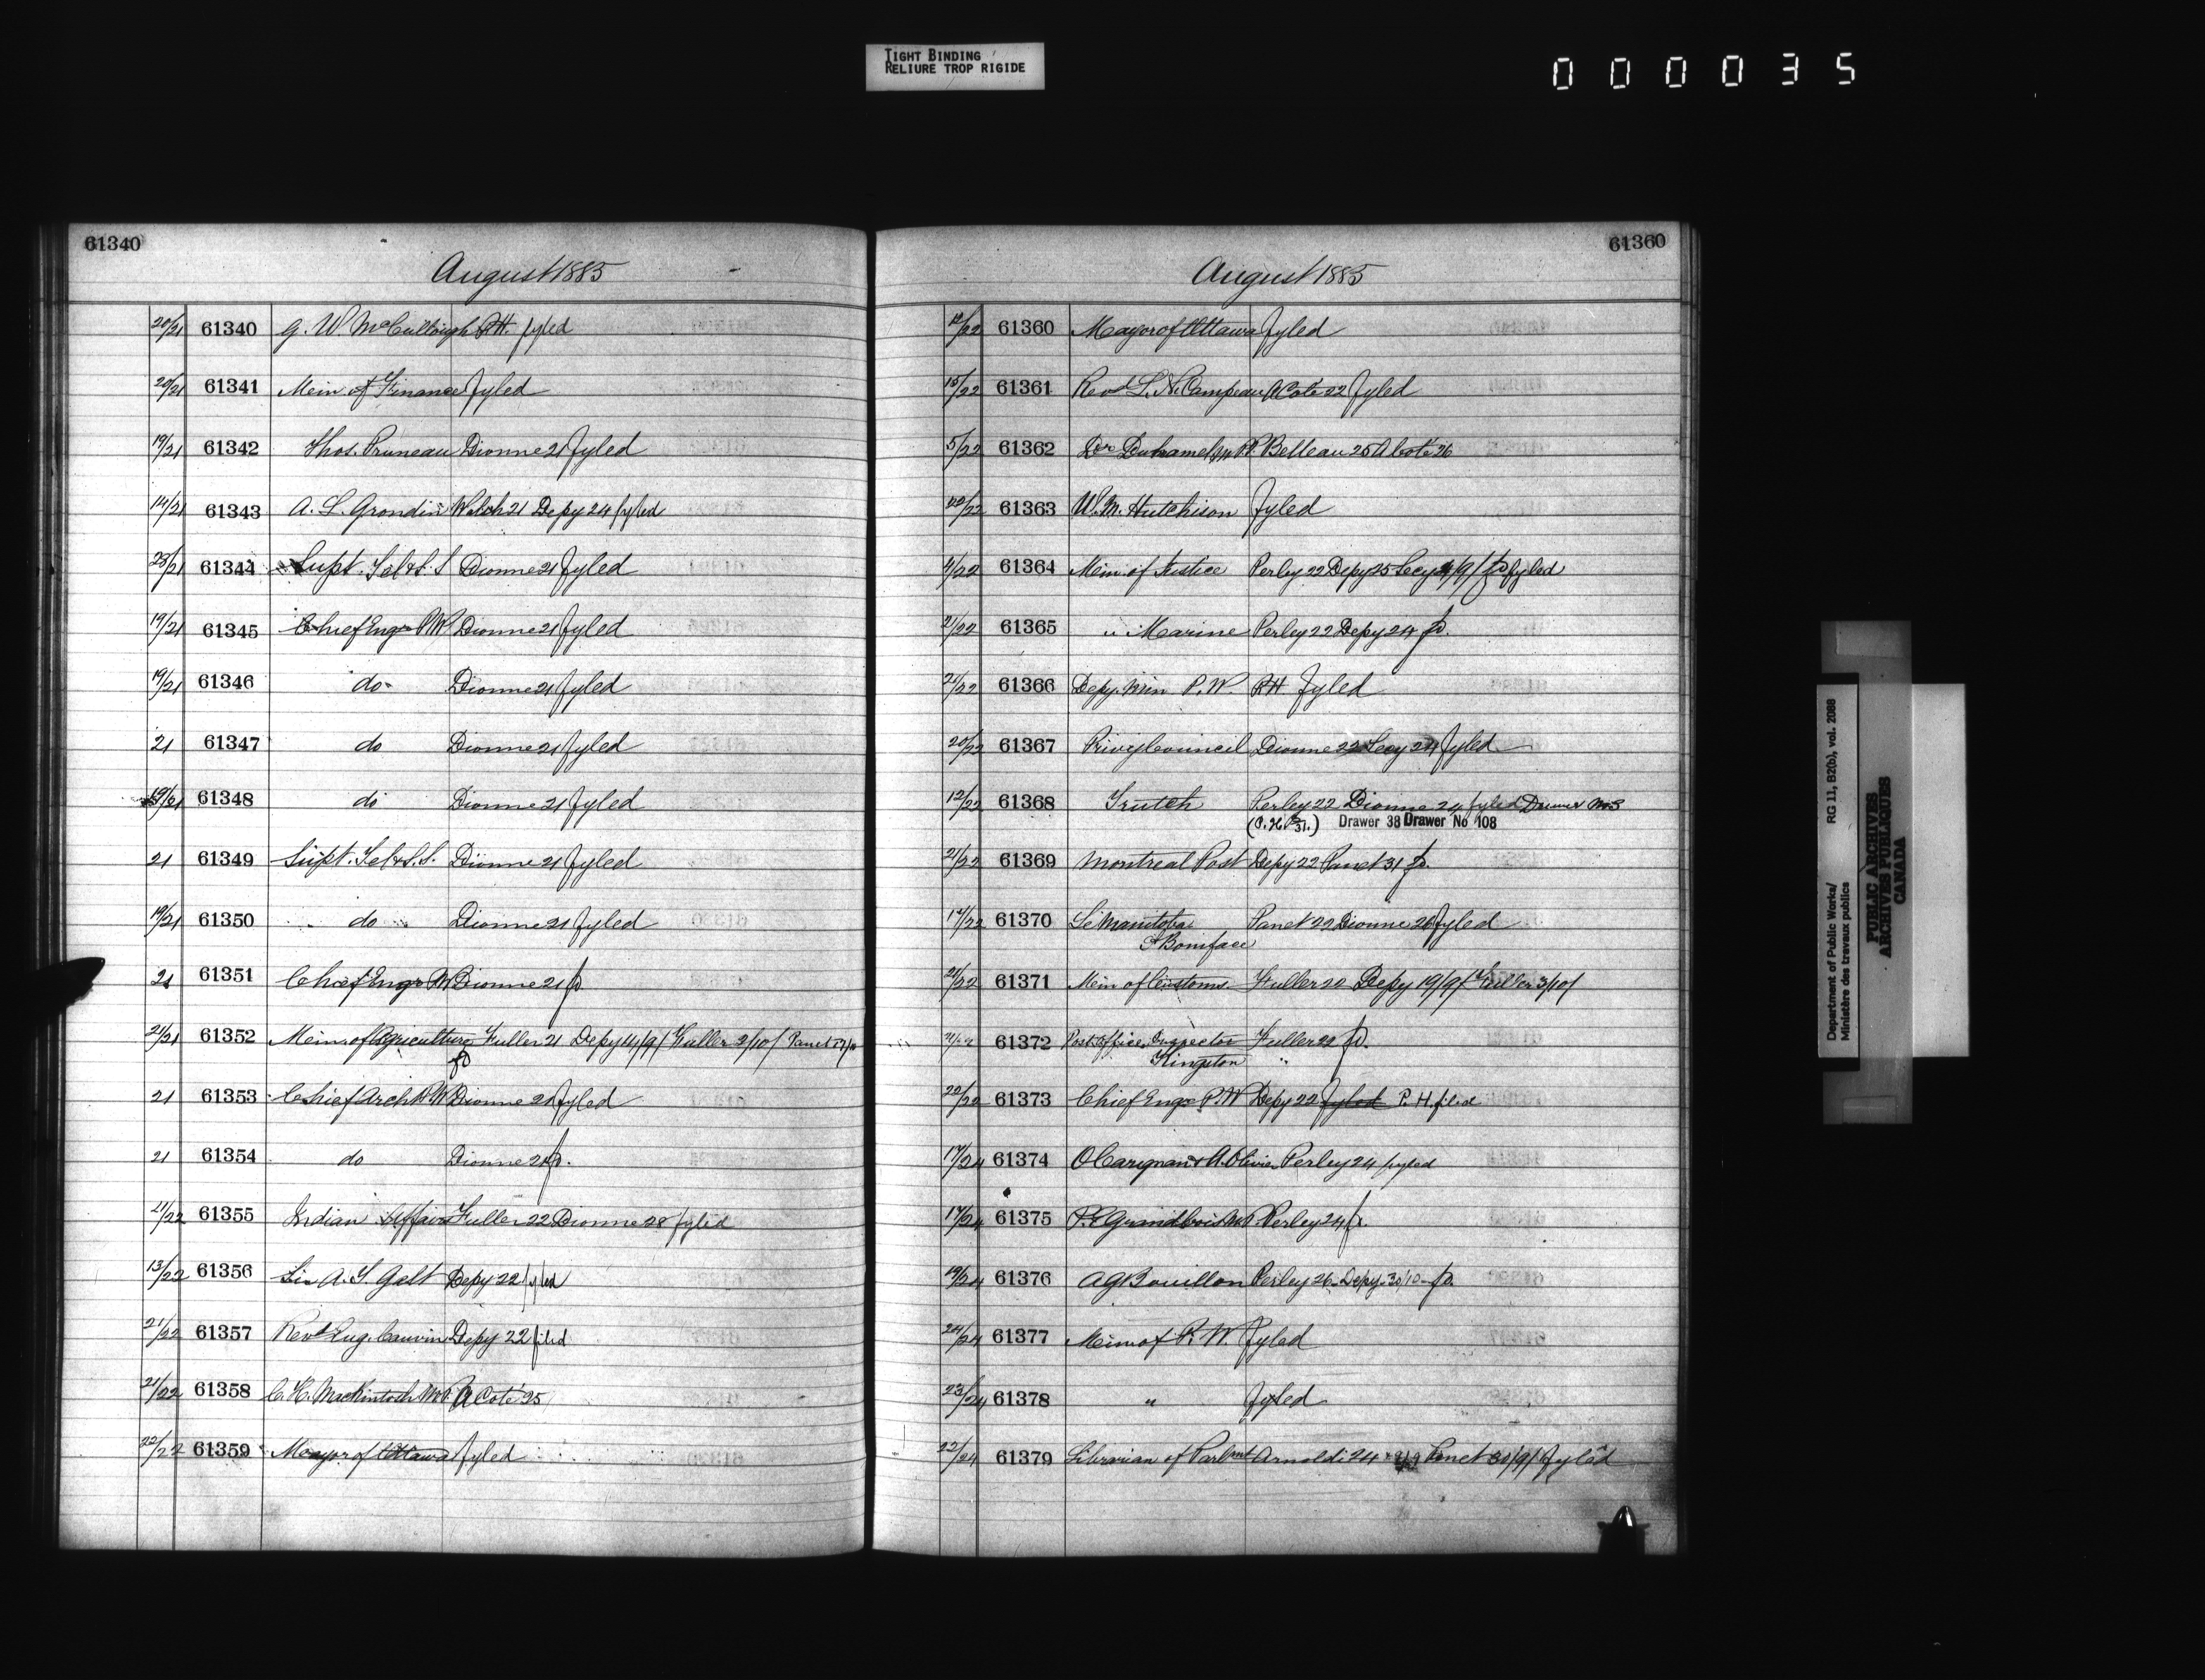 TIGHT BINDING
RELIURE TROP RIGIDE
000035
61340
August 1885
20/21 61340 G. W. McCullough P.H. fyled
20/21 61341 Min of Finance fyled
19/21 61342 Thos. Pruneau Dionne 21 fyled
14/21 61343 A. L. Grondin Welch 21 Depy 24 fyled
61344 Supt. Tel & S. S Dionne 21 fyled
19/21 61345 Chief Engr P W Dionne 21 fyled
19/21 61346 do Dionne 21 fyled
21 61347 do Dionne 21 fyled
19/21 61348 do Dionne 21 fyled
21 61349 Supt. Tel & S. S. Dionne 21 fyled
19/21 61350 do Dionne 21 fyled
21 61351 Chief Engr P W Dionne 21 fd
21/21 61352 Min. of Agriculture Fuller 21 Depy 14/9/ Fuller 2/10/ Panet
fd
21 61353 Chief Arch P. W Dionne 21 fyled
21 61354 do Dionne 21 fd.
21/22 61355 Indian Affairs Fuller 22 Dionne 28 fyled
13/22 61356 Sir A. T. Galt Depy 22 fyled
21/22 61357 Revd Eug. Cauvin Depy 22 filed
21/22 61358 C. H. Mackintosh M.P. A Coté 25
22/22 61359 Mayor of Ottawa fyled
61360
August 1885
61360 Mayor of Ottawa fyled
15/22 61361 Revd L. N. Campeau A Coté 22 fyled
5/22 61362 Dr Duhamel M.P.P. Belleau 25 A Coté 26
22/22 61363 W. M. Hutchison fyled
4/22 61364 Min. of Justice Perley 22 Depy 25 Secy 4/9/ fd fyled
21/22 61365 " Marine Perley 22 Depy 24 fd.
21/22 61366 Depy. Min P. W. P.H fyled
20/22 61367 Privy Council Dionne 22 Secy 24 fyled
12/22 61368 Trutch Perley 22 Dionne 24 fyled Drawer
Drawer 38 Drawer No 108
21/22 61369 Montreal Post Depy 22 Panet 31 fd.
17/22 61370 Le Manitoba Panet 22 Dionne 26 fyled
St Boniface
21/22 61371 Min of Customs Fuller 22 Depy 19/9/ Fuller 3/10/
61372 Post Office Inspector Fuller 22 fd.
Kingston "
22/22 61373 Chief Engr P. W Depy 22 fyled P. H. filed
17/24 61374 O Carignan & A. Olivier Perley 24 fyled
17/24 61375 P. E Grandbois M.P. Perley 24 fd.
19/24 61376 A G Bouillon Perley 26 Depy 30/10 fd.
24/24 61377 Min of P. W. fyled
23/24 61378 " fyled
22/24 61379 Librarian of Parlmnt Arnoldi 24 Panet 30/9/ fyled
Department of Public Works/
Ministère des travaux publics
RG 11, B2(b), vol. 2088
PUBLIC ARCHIVES
ARCHIVES PUBLIQUES
CANADA